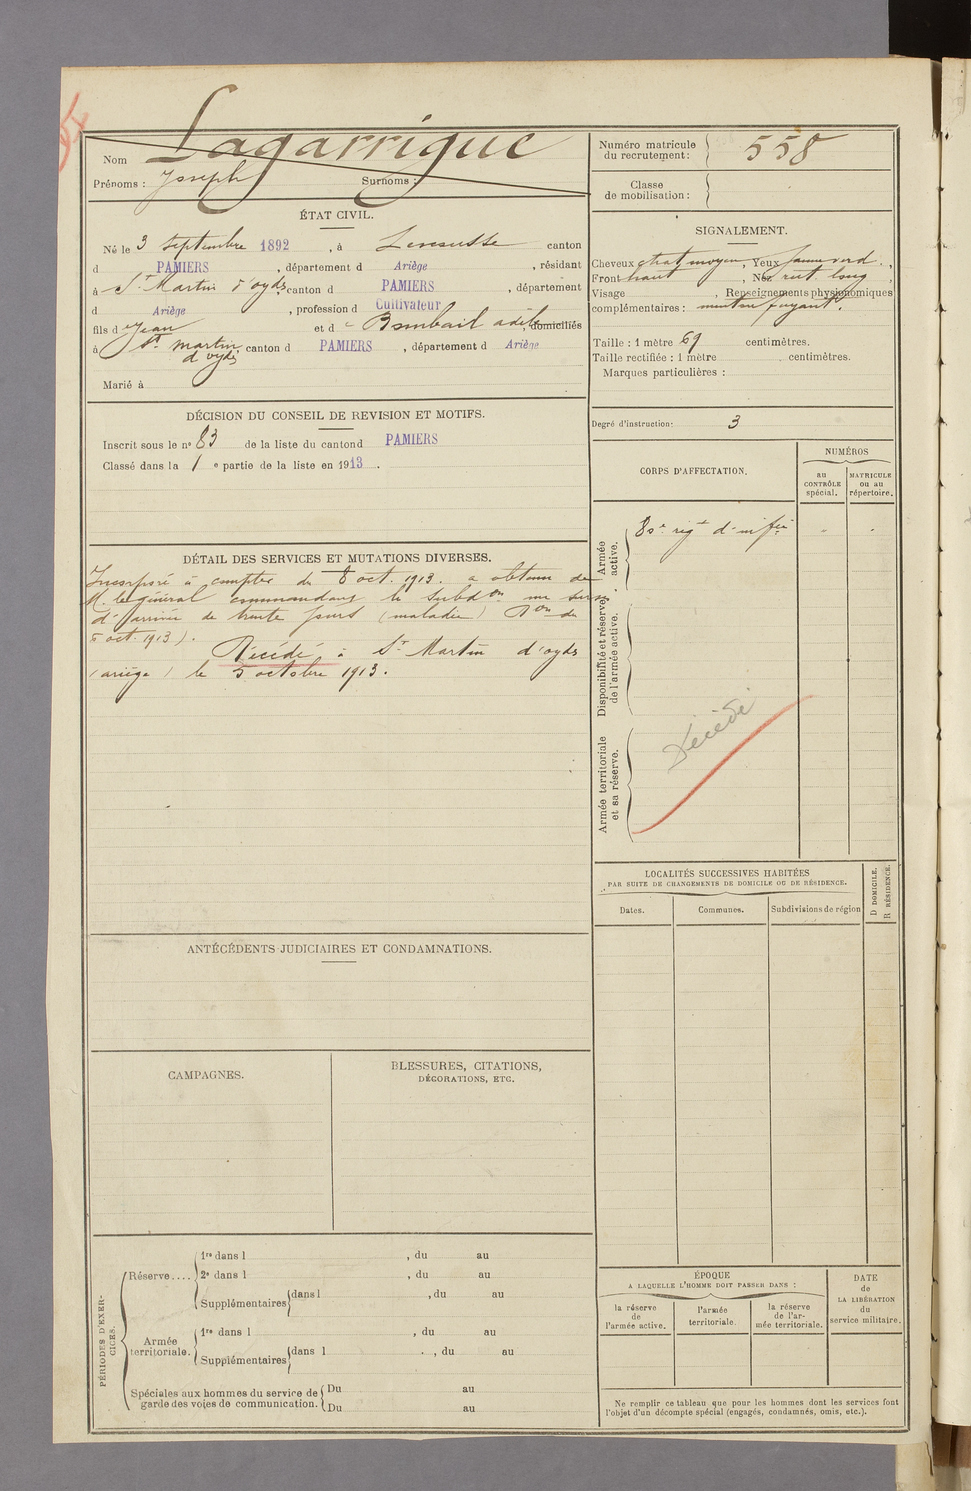 Nom Lagarrigue
Prénoms : Joseph Surnoms :
Numéro matricule du recrutement : 558
Classe de mobilisation :
ÉTAT CIVIL.
Né le 3 septembre 1892, à canton
d PAMIERS, département d Ariège, résidant
à St Martin d'oydes, canton d PAMIERS, département
d Ariège, profession d Cultivateur
fils d Jean et d Bombail adèle, domiciliés
à St martin d'oydes, canton d PAMIERS, département d Ariège
Marié à
SIGNALEMENT.
Cheveux chat moyen, Yeux jaune verd.,
Front haut, Nez rect long,
Visage , Renseignements physionomiques
complémentaires : menton fuyant.
Taille : 1 mètre 69 centimètres.
Taille rectifiée : 1 mètre centimètres.
Marques particulières :
Degré d'instruction : 3
DÉCISION DU CONSEIL DE REVISION ET MOTIFS.
Inscrit sous le no 83 de la liste du canton d PAMIERS
Classé dans la 1e partie de la liste en 1913.
DÉTAIL DES SERVICES ET MUTATIONS DIVERSES.
Incorporé à compter du 8 oct. 1913. a obtenu de
M. le général commandant la subdon un sursis
d'arrivée de trente jours (maladie) Don du
5 oct. 1913).
Décédé à St Martin d'oydes
(ariège) le 5 octobre 1913.
CORPS D'AFFECTATION.
NUMÉROS
au CONTRÔLE spécial.
MATRICULE ou au répertoire.
Armée active.
80e régt d'infie
Disponibilité et réserve de l'armée active.
Armée territoriale et sa réserve.
Décédé
LOCALITÉS SUCCESSIVES HABITÉES
PAR SUITE DE CHANGEMENTS DE DOMICILE OU DE RÉSIDENCE.
Dates. Communes. Subdivisions de région
D DOMICILE.
R RÉSIDENCE.
ANTÉCÉDENTS JUDICIAIRES ET CONDAMNATIONS.
CAMPAGNES.
BLESSURES, CITATIONS,
DÉCORATIONS, ETC.
PÉRIODES D'EXERCICES.
Réserve....
1re dans l , du au
2e dans l , du au
Supplémentaires dans l , du au
Armée territoriale.
1re dans l , du au
Supplémentaires dans l , du au
Spéciales aux hommes du service de
garde des voies de communication.
Du au
Du au
ÉPOQUE
A LAQUELLE L'HOMME DOIT PASSER DANS :
la réserve de l'armée active.
l'armée territoriale.
la réserve de l'armée territoriale.
DATE de LA LIBÉRATION du service militaire.
Ne remplir ce tableau que pour les hommes dont les services font
l'objet d'un décompte spécial (engagés, condamnés, omis, etc.).